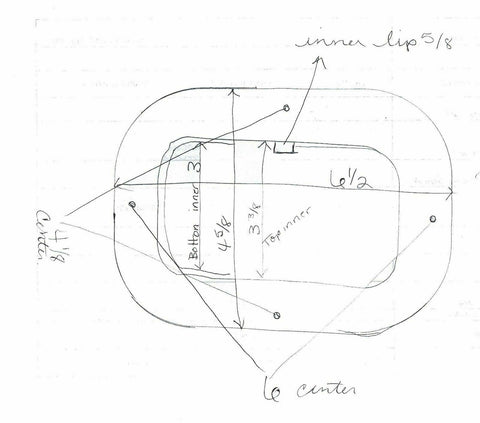 inner lip 5/8
6 1/2
Botton inner 3
4 5/8
3 3/8
Top inner
4 1/8
Center
6 center